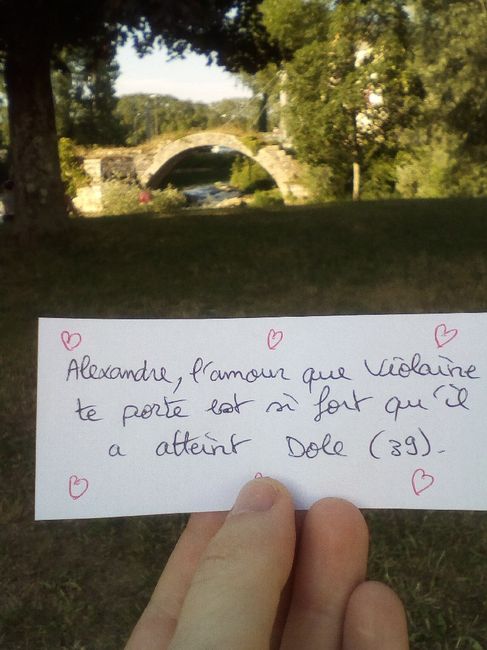 Alexandre, l'amour que Violaine
te porte est si fort qu'il
a atteint Dole (39).